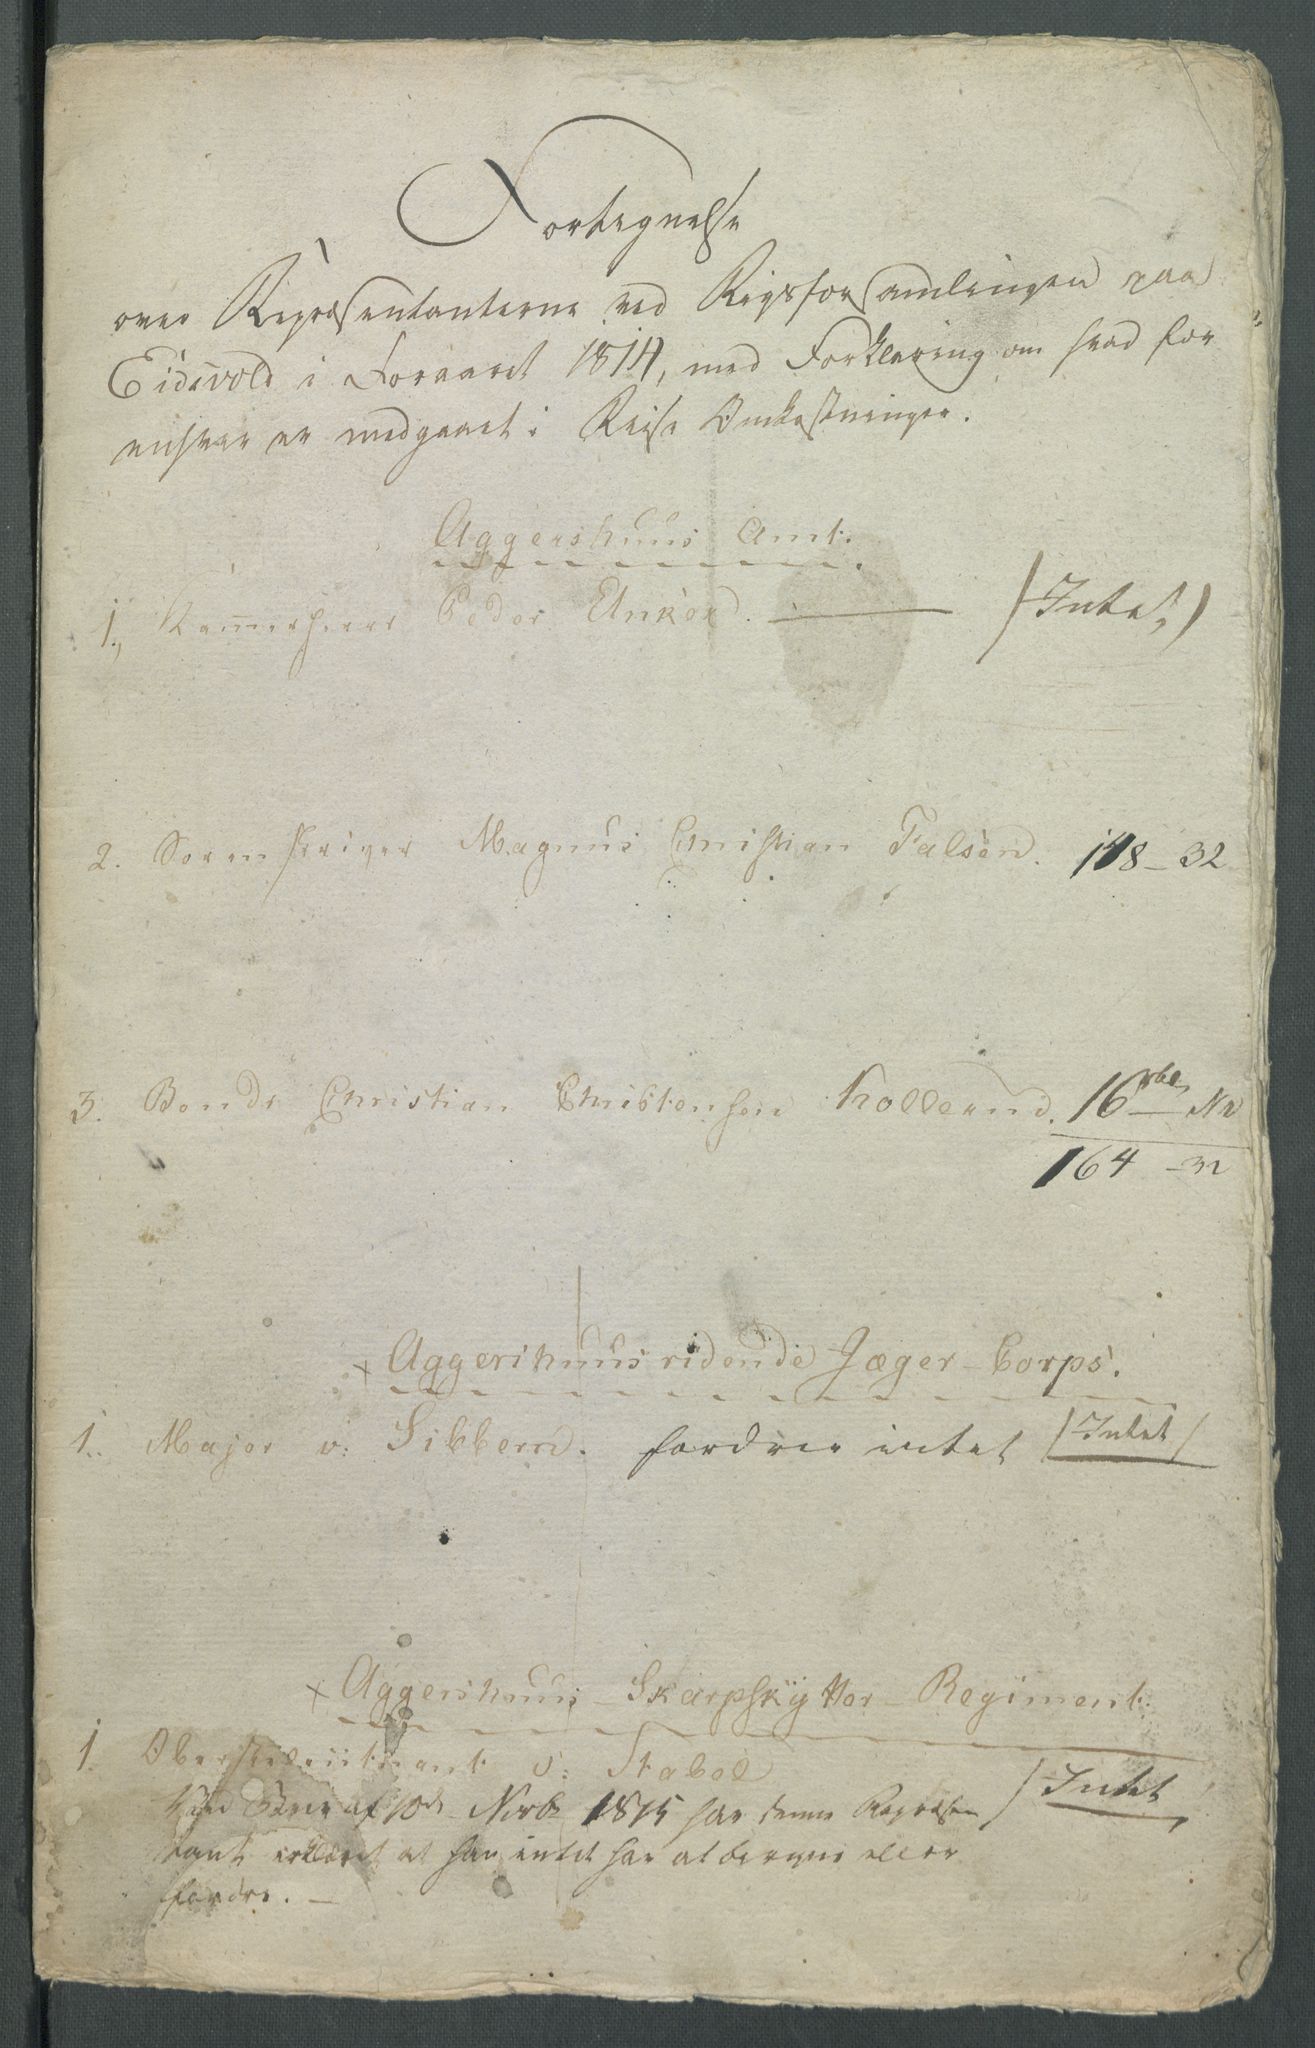 Fortegnelse
over Repræsentanterne ved Rigsforsamlingen paa
Eidsvold i Foraaret 1814, med Forklaring om hvad for
enhver er medgaaet i Reise Omkostninger.
Aggershuus Amt.
1., Kammerherre Peder Anker. (Intet)
2. Sorenskriver Magnus Christian Falsen. 148 - 32
3. Bonde Christian Christensen Kollerud. 16 rbd NV
164 - 32
x Aggershuus ridende Jæger-Corps.
1. Major v: Sibbern. fordrer intet /Intet/
x Aggershuus Skarpskytter-Regiment.
1. Oberstleiutnant v: Stabel /Intet
Ved Brev af 10de Novbr 1815 har denne Repræsen
tant erklæret at han intet har at beregne eller
fordre. —